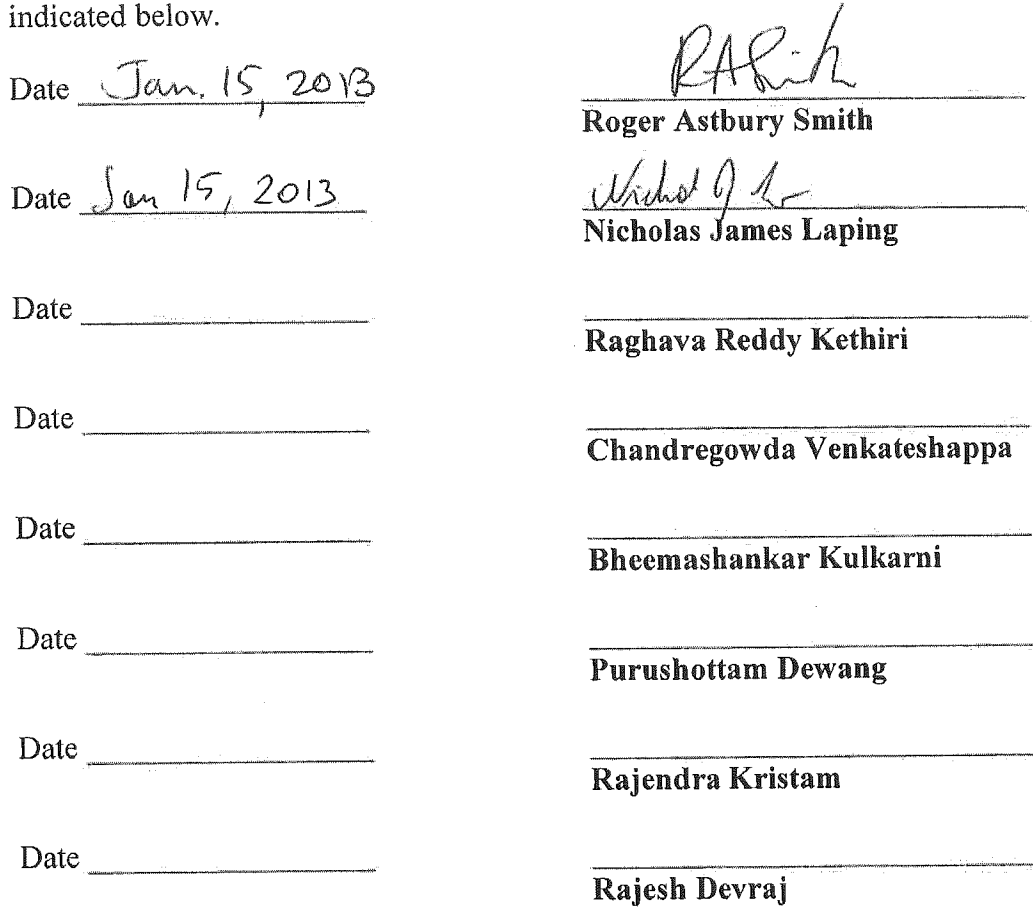 indicated below.
Date Jan. 15, 2013 RASmith
Roger Astbury Smith
Date Jan 15, 2013
Nicholas James Laping
Date
Raghava Reddy Kethiri
Date
Chandregowda Venkateshappa
Date
Bheemashankar Kulkarni
Date
Purushottam Dewang
Date
Rajendra Kristam
Date
Rajesh Devraj